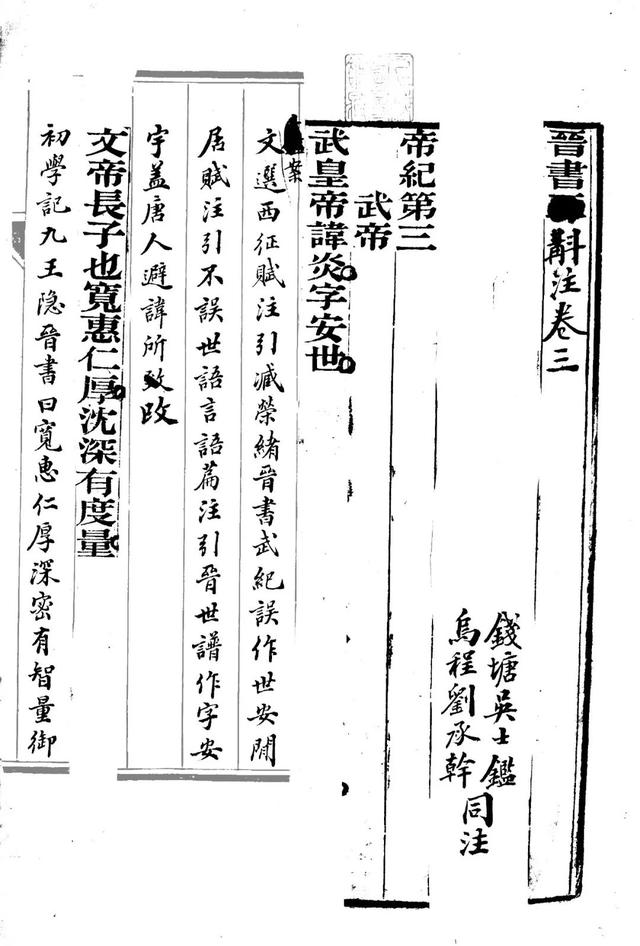 晉書斠注卷三
錢塘吳士鑑
烏程劉承幹同注
帝紀第三
武帝
武皇帝諱炎字安世
案
文選西征賦注引臧榮緒晉書武紀誤作世安閒
居賦注引不誤世語言語篇注引晉世譜作字安
宇盖唐人避諱所致改
文帝長子也寬惠仁厚沈深有度量
初學記九王隐晉書曰寬惠仁厚深密有智量御